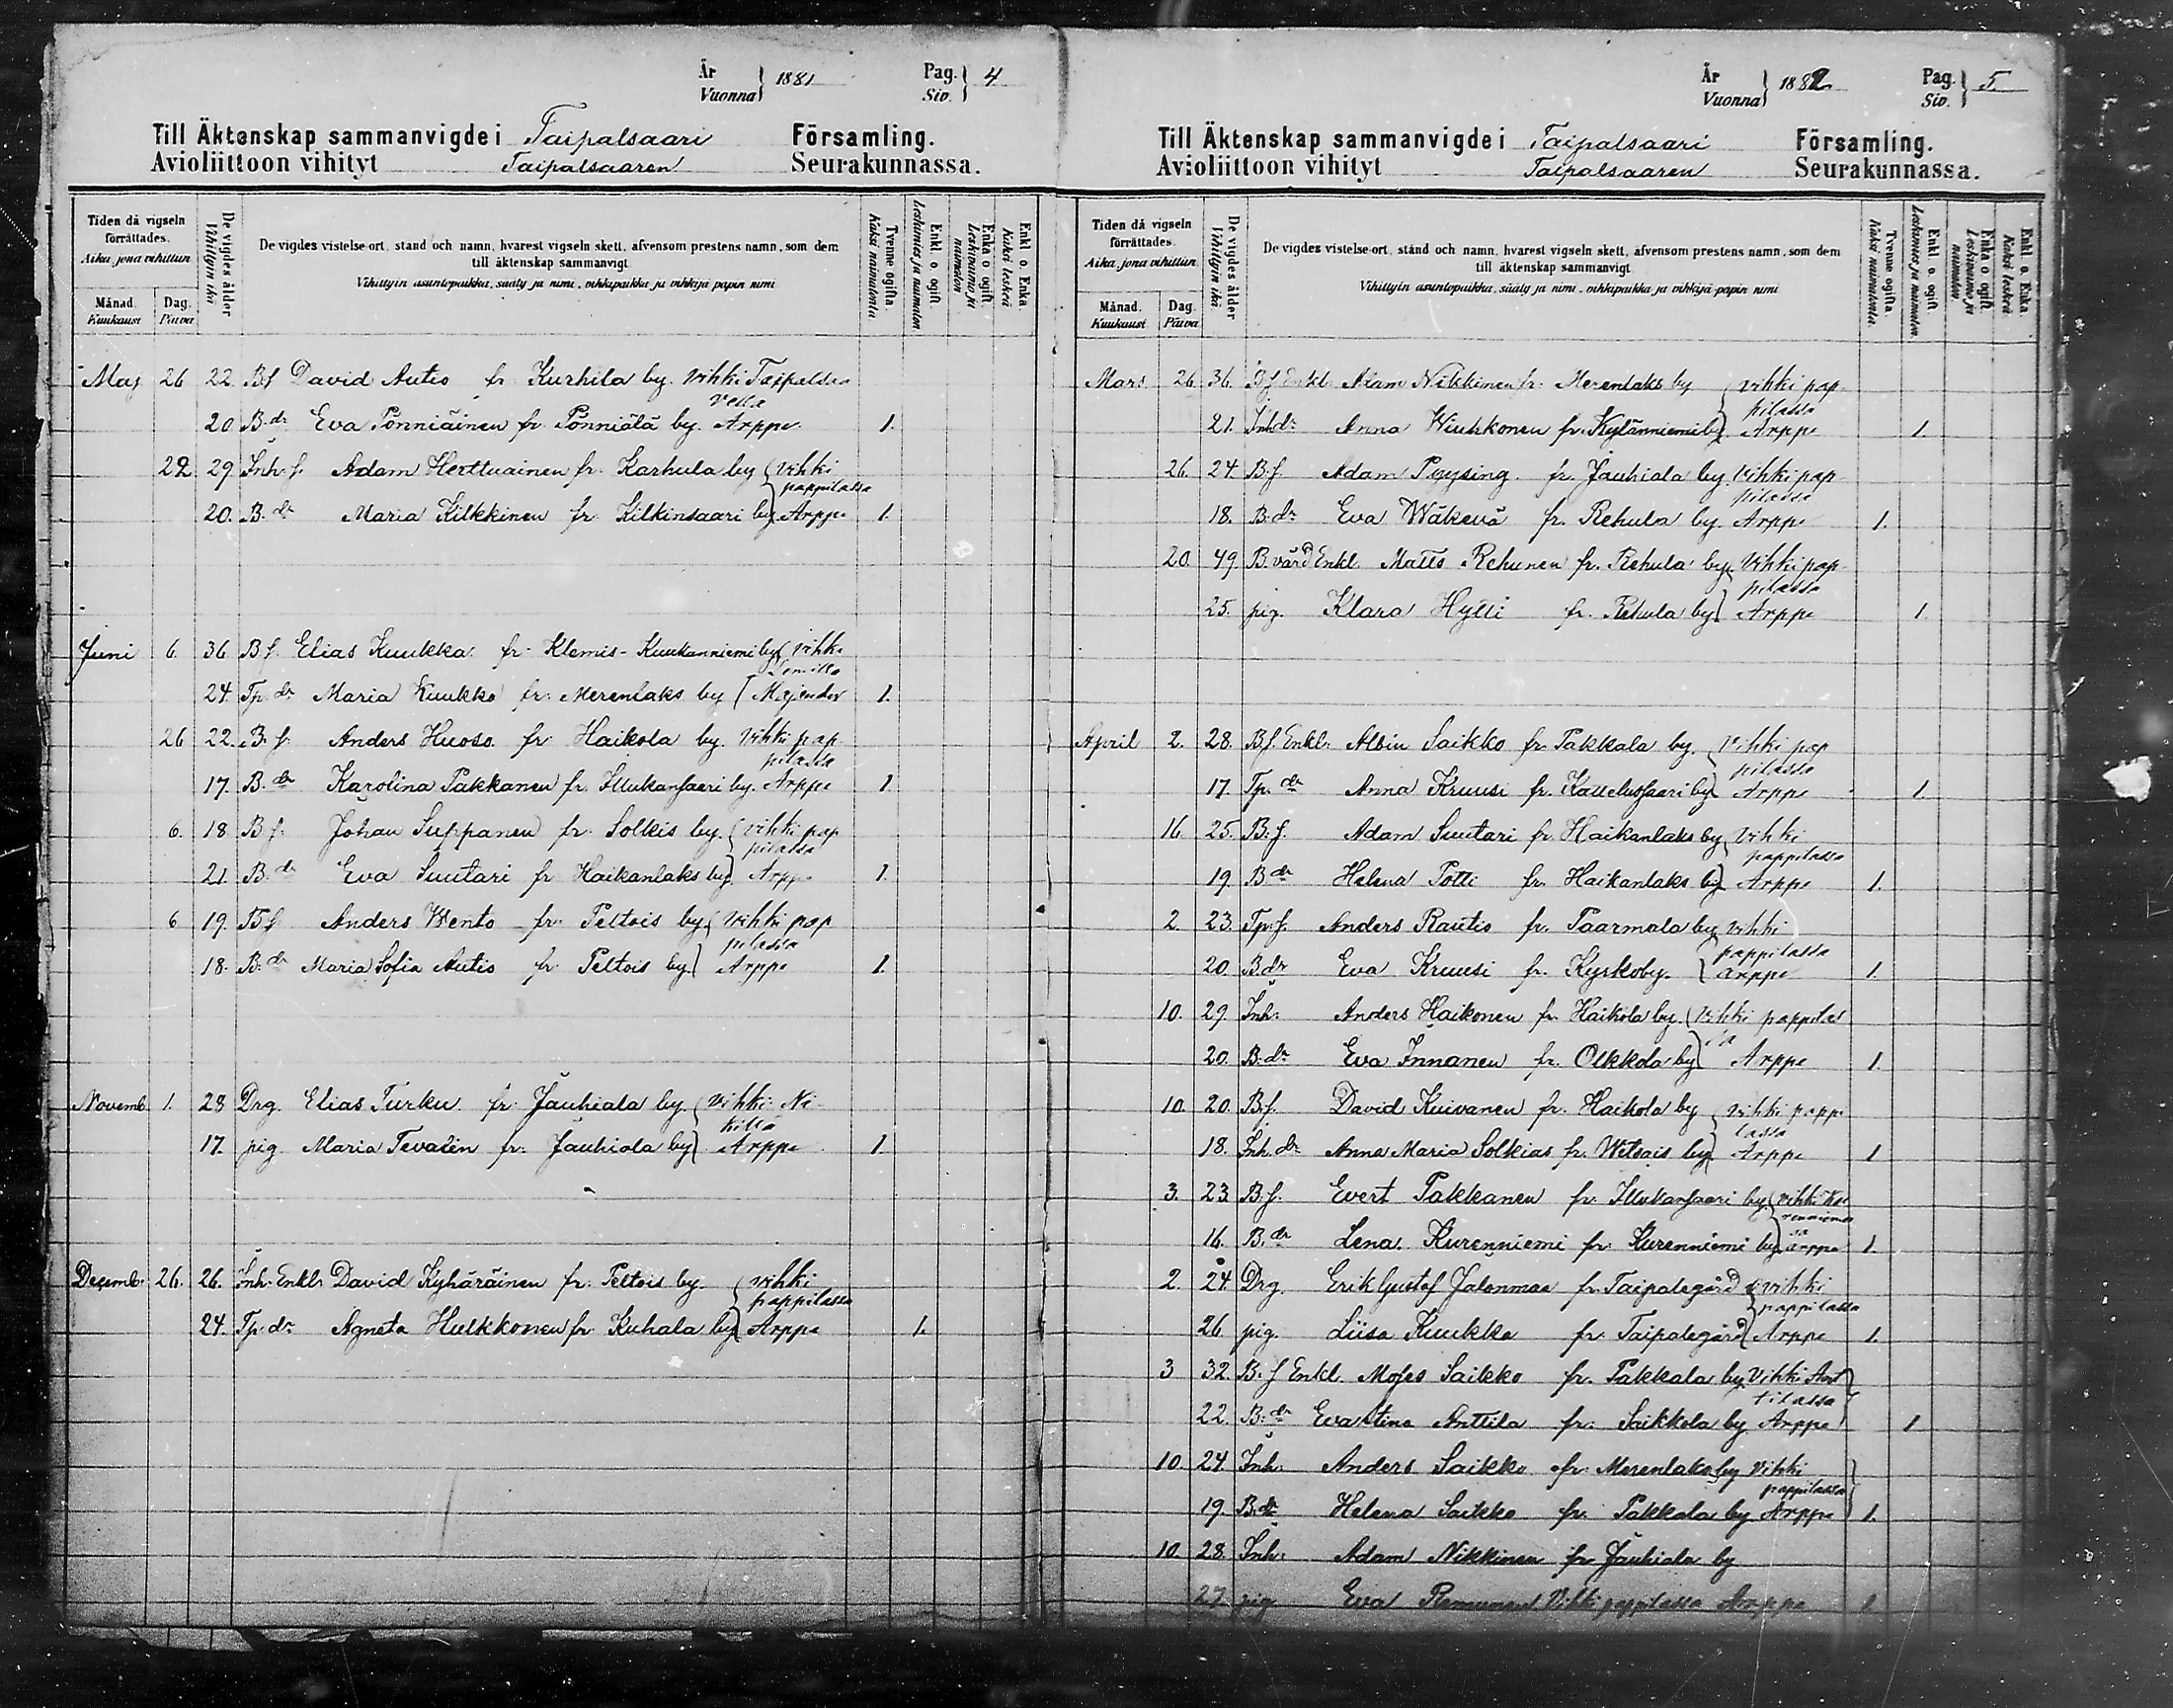 År Vuonna } 1881 Pag. Siv. } 4
Till Äktenskap sammanvigde i Taipalsaari Församling.
Avioliittoon vihityt Taipalsaaren Seurakunnassa.
Tiden då vigseln förrättades. Aika, jona vihittiin
Månad. Kuukausi
Dag. Päivä
De vigdes ålder Vihittyin ikä
De vigdes vistelseort, stånd och namn, hvarest vigseln skett, äfvensom prestens namn, som dem till äktenskap sammanvigt
Vihittyin asuntopaikka, sääty ja nimi, vihkipaikka ja vihkijä papin nimi
Tvenne ogifta. Kaksi naimatonta
Enkl. o. ogift. Leskimies ja naimaton
Enka o. ogift. Leskivaimo ja naimaton
Enkl o. Enka. Kaksi leskeä
Maj 26 22. Bf David Autio fr Kurhila by. vihki Taipalsaa
20. B.dr Eva Pönniäinen fr. Pönniälä by. Arppe 1.
22 29. Inh. f. Adam Herttuainen fr. Karhula by vihki
pappilassa
20. B. dr Maria Kilkkinen fr Kilkinsaari by Arppe 1.
Juni 6. 36 Bf. Elias Kuukka fr. Klemis-Kuukanniemi by vihki
24. Tp. dr Maria Kuukka fr. Merenlaks by 1.
26 22. B. f. Anders Huoso fr Haikola by. vihki pap
pilassa
17. B. dr Karolina Pakkanen fr. Illukansaari by. Arppe 1
6. 18 B f. Johan Suppanen fr. Solkis by. vihki pap
pilassa
21. B. dr Eva Suutari fr Haikanlaks by Arppe 1.
6 19. Bf Anders Wento fr. Peltois by vihki pap
pilassa
18. B. dr Maria Sofia Autio fr Peltois by. Arppe 1.
Novemb. 1. 28 Drg. Elias Turku fr. Jauhiala by. vihki Ni
17. pig Maria Tevalin fr. Jauhiala by Arppe 1.
Decemb. 26. 26. Inh. Enkl. David Kyhäräinen fr. Peltois by. vihki
pappilassa
24. Tp. dr Agneta Hulkkonen fr Kuhala by Arppe 1.
År Vuonna } 1882 Pag. Siv. } 5
Till Äktenskap sammanvigde i Taipalsaari Församling.
Avioliittoon vihityt Taipalsaaren Seurakunnassa.
Tiden då vigseln förrättades. Aika, jona vihittiin
Månad. Kuukausi
Dag. Päivä
De vigdes ålder Vihittyin ikä
De vigdes vistelseort, stånd och namn, hvarest vigseln skett, äfvensom prestens namn, som dem till äktenskap sammanvigt
Vihittyin asuntopaikka, sääty ja nimi, vihkipaikka ja vihkijä papin nimi
Tvenne ogifta. Kaksi naimatonta
Enkl. o. ogift Leskimies ja naimaton
Enka o. ogift. Leskivaimo ja naimaton
Enkl o. Enka. Kaksi leskeä
Mars 26 36. Bf Enkl. Adam Nikkinen fr. Merenlaks by vihki pap
pilassa
21. Inh dr Anna Wiuhkonen fr. Kylänniemi by Arppe 1.
26. 24. B.f. Adam fr. Jauhiala by. vihki pap
pilassa
18. B. dr Eva Wäkevä fr. Rehula by. Arppe 1.
20. 49. B. värd Enkl. Matts Rehunen fr. Rehula by. vihki pap
pilassa
25. pig. Klara Hytti fr. Rehula by Arppe 1.
April 2. 28. Bf. Enkl. Albin Saikko fr. Pakkala by. vihki pap
pilassa
17. Tp. dr Anna Kruusi fr. Kattelussaari by Arppe 1.
16. 25. B. f. Adam Suutari fr. Haikanlaks by vihki
pappilassa
19. B dr Helena Potti fr. Haikanlaks by Arppe 1.
2. 23. Tp. f. Anders Rautio fr. Paarmala by vihki
pappilassa
20. B dr Eva Kruusi fr. Kyrkoby. Arppe 1.
10. 29. Inh. Anders Haikonen fr. Haikola by. vihki pappilas
sa
20. B. dr Eva Innanen fr. Olkkola by Arppe 1.
10. 20. Bf. David Kuivanen fr. Haikola by vihki pappi
lassa
18. Inh. dr Anna Maria Solkias fr. Wetsais by Arppe 1
3. 23. B. f. Evert Pakkanen fr. Illukansaari by. vihki Ku
renniemes
sä
16. B. dr Lena Kurenniemi fr. Kurenniemi by Arppe 1.
2. 24 Drg. Erik Gustaf Jalonmaa fr. Taipalegård vihki
pappilassa
26 pig. Liisa Kuukka fr. Taipalegård Arppe 1.
3 32. B. f Enkl. Moses Saikko fr. Pakkala by. vihki Ant
tilassa
22. B. dr Eva Stina Anttila fr. Saikkola by Arppe 1
10. 24. Inh. Anders Saikko fr. Merenlaks by vihki
pappilassa
19. B. dr Helena Saikko fr. Pakkala by Arppe 1.
10. 28. Inh. Adam Nikkinen fr Jauhiala by
27. pig Eva vihki pappilassa Arppe 1